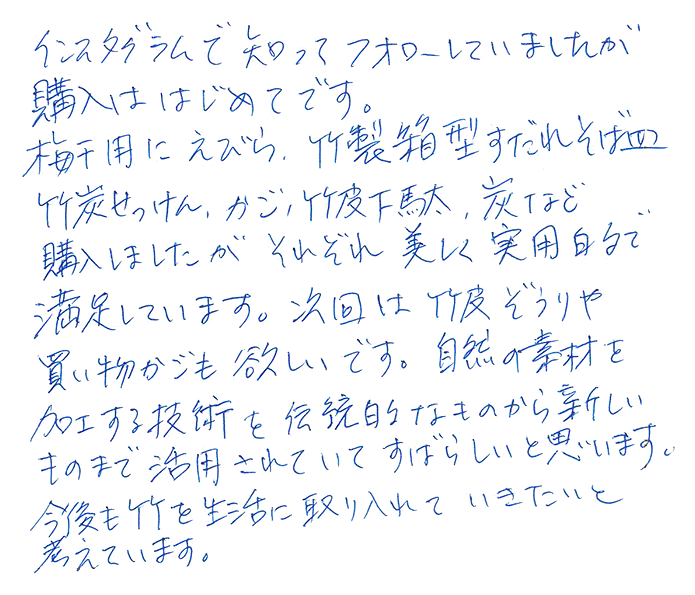 インスタグラムで知ってフォローしていましたが
購入ははじめてです。
梅干用にえびら、竹製箱型すだれそば皿
竹炭せっけん、カゴ、竹皮下駄、炭など
購入しましたがそれぞれ美しく実用的で
満足しています。次回は竹皮ぞうりや
買い物かごも欲しいです。自然の素材を
加工する技術を伝統的なものから新しい
ものまで活用されていてすばらしいと思います。
今後も竹を生活に取り入れていきたいと
考えています。